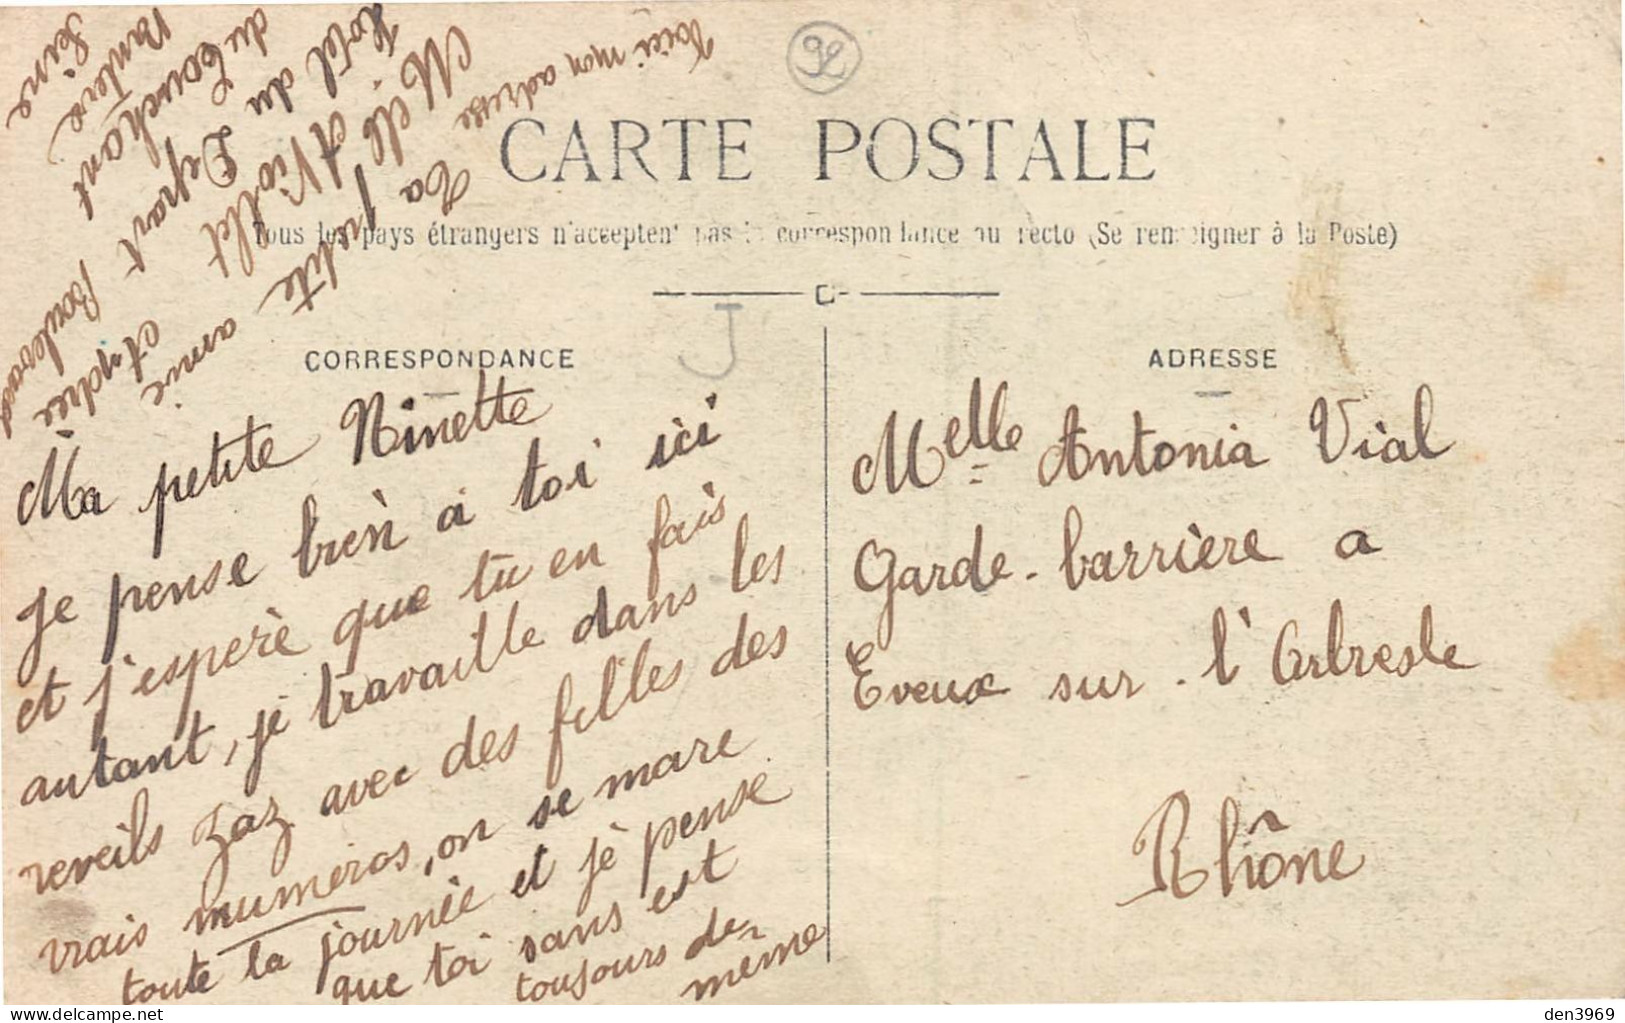 CARTE POSTALE
Tous les pays étrangers n'acceptent pas la correspondance au recto (Se renseigner à la Poste)
CORRESPONDANCE
ADRESSE
Ma petite Ninette
je pense bien à toi ici
et j'espère que tu en fais
autant, je travaille dans les
reveils zaz avec des filles des
vrais numéros, on se mare
toute la journée et je pense
que toi sans est
toujours de
meme
Ta petite amie
Voici mon adresse
Melle A Viollet
Hotel du Depart
du Couchant
Nanterre
Seine
Melle Antonia Vial
Garde-barrière a
Eveux sur l'Arbresle
Rhône
J
delcampe.net
den3969